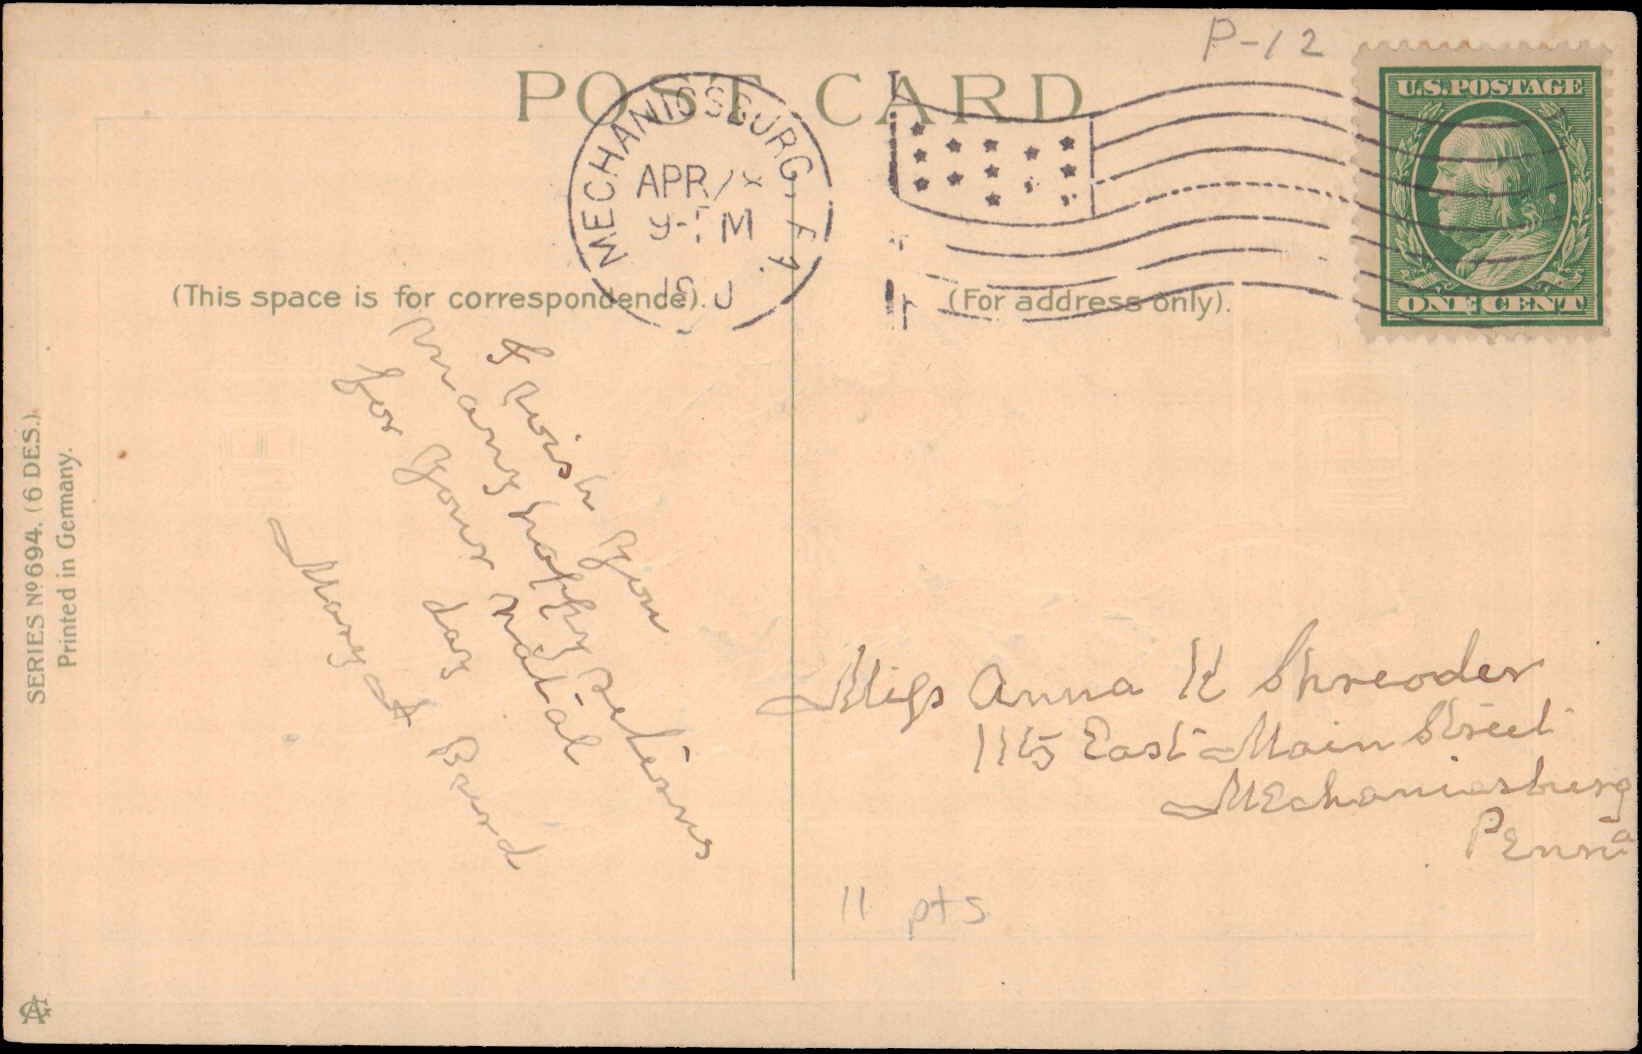 P-12
POST CARD
U.S. POSTAGE
ONE CENT
MECHANICSBURG, PA.
APR
9- M
(This space is for correspondence).
(For address only).
I wish you
many happy Returns
for your natal
day
Mary A Baird
Miss Anna K Shreoder
1115 East Main Street
Mechanicsburg
Penna
11 pts
SERIES Nº 694. (6 DES.).
Printed in Germany.